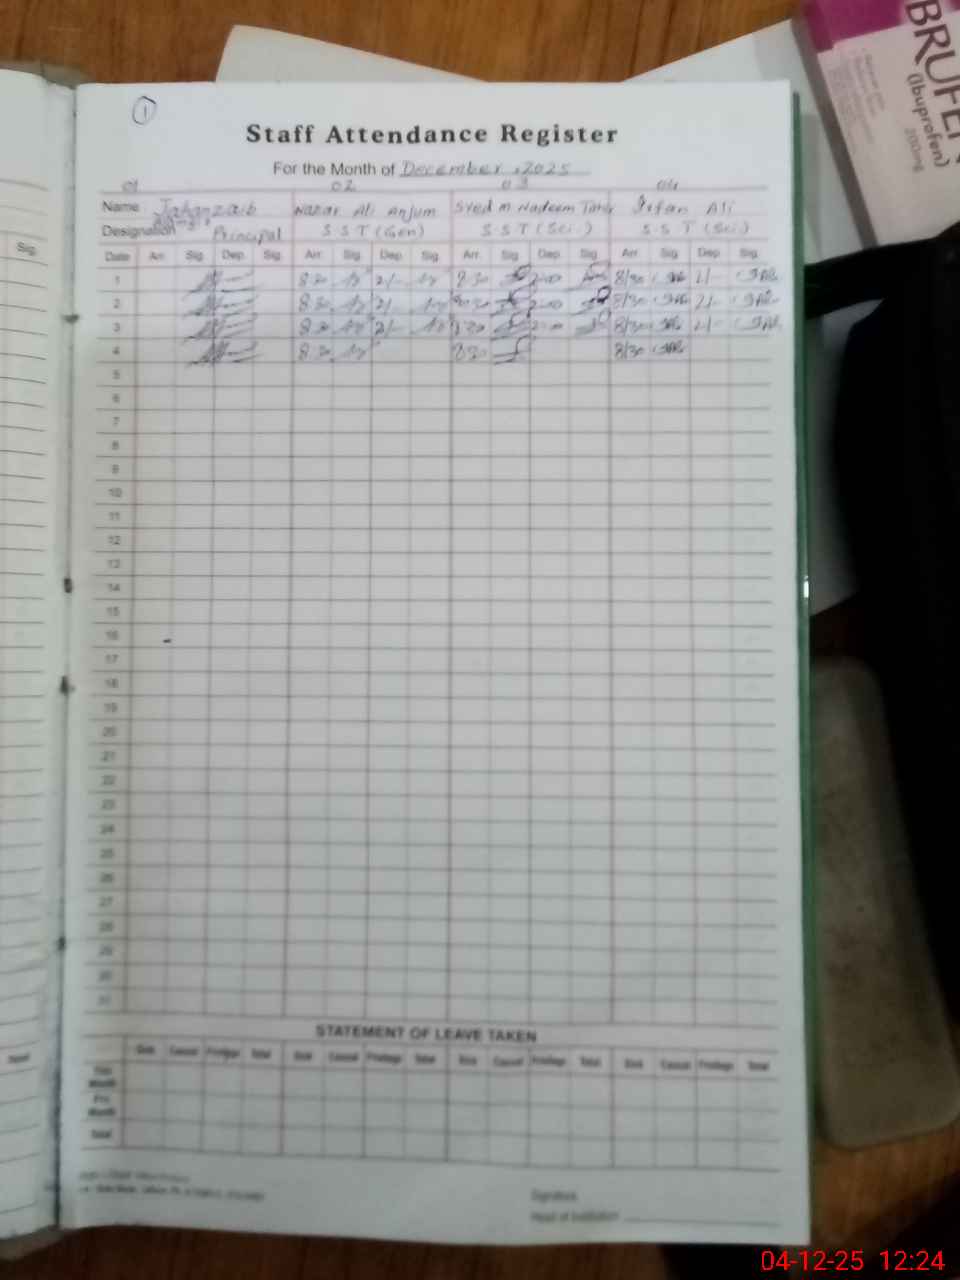 1
Staff Attendance Register
For the Month of December, 2025
01 02 03 04
Name Jahanzaib Nazar Ali Anjum Syed M Nadeem Tahir Irfan Ali
Designation Principal S S T (Gen) S.S.T (Sci.) S.S T (Sci)
Date Arr. Sig. Dep. Sig. Arr. Sig. Dep. Sig. Arr. Sig. Dep. Sig. Arr. Sig. Dep. Sig.
1 8 30 2/- 830 2:00 8/30 2/-
2 8 30 2/- 830 2:00 8/30 2/-
3 8 30 2/- 830 2:00 8/30 2/-
4 8 30 830 8/30
5
6
7
8
9
10
11
12
13
14
15
16
17
18
19
20
21
22
23
24
25
26
27
28
29
30
31
STATEMENT OF LEAVE TAKEN
Sick Casual Privilege Total Sick Casual Privilege Total Sick Casual Privilege Total Sick Casual Privilege Total
This Month
Pre. Month
Total
Signature
Head of Institution
Sig.
BRUFEN
(Ibuprofen)
200mg
04-12-25 12:24